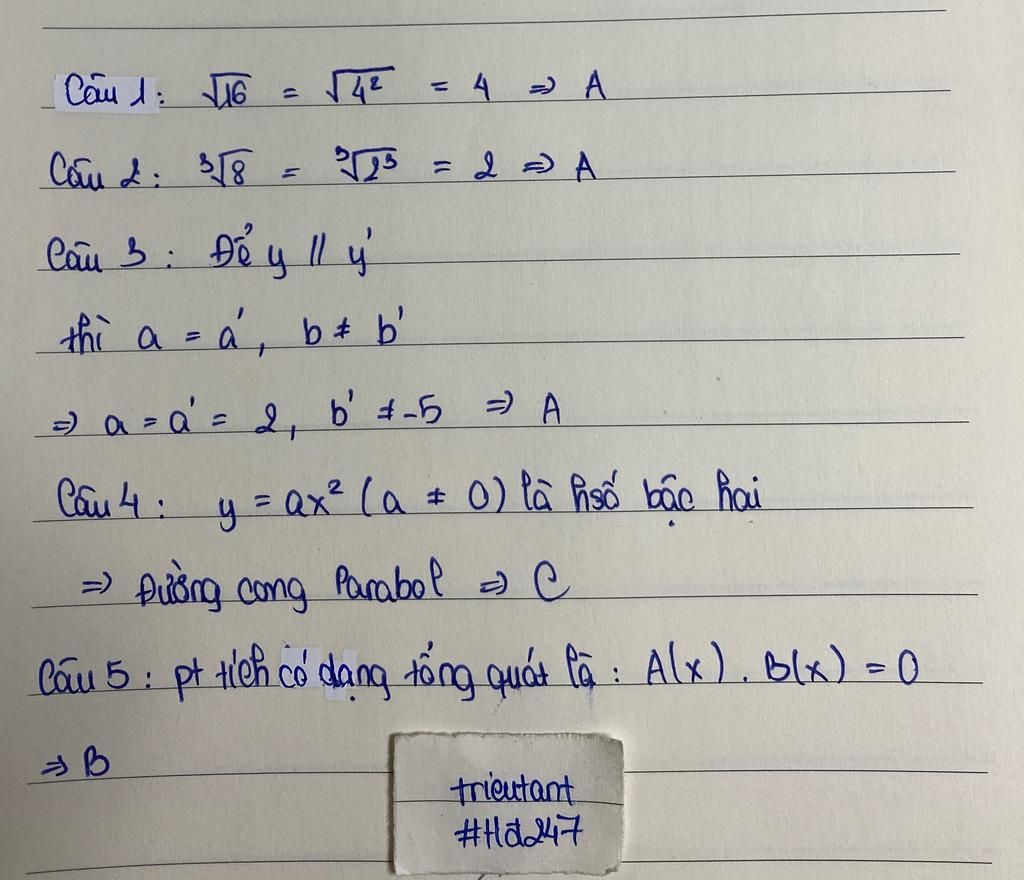 Câu 1: √16 = √4² = 4 => A
Câu 2: ³√8 = ³√2³ = 2 => A
Câu 3: Để y // y'
thì a = a', b ≠ b'
=> a = a' = 2, b' ≠ -5 => A
Câu 4: y = ax² (a ≠ 0) là hsố bậc hai
=> Đường cong Parabol => C
Câu 5: pt tích có dạng tổng quát là: A(x) . B(x) = 0
=> B
trieutant
#Hđ247